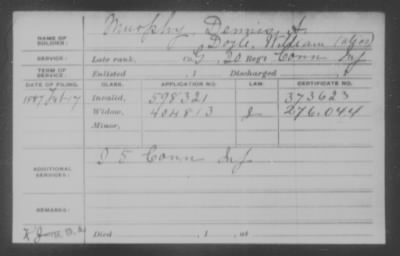 NAME OF SOLDIER: Murphy Dennis A.
Doyle, William (alias)
SERVICE: Late rank, Co. G, 20 Reg't Conn Inf
TERM OF SERVICE: Enlisted , 1 Discharged , 1
DATE OF FILING. CLASS. APPLICATION NO. LAW. CERTIFICATE NO.
1887 Feb 17 Invalid, 598321 373623
Widow, 404813 276.044
Minor,
ADDITIONAL SERVICES: 5 Conn Inf
REMARKS:
Died , 1 , at